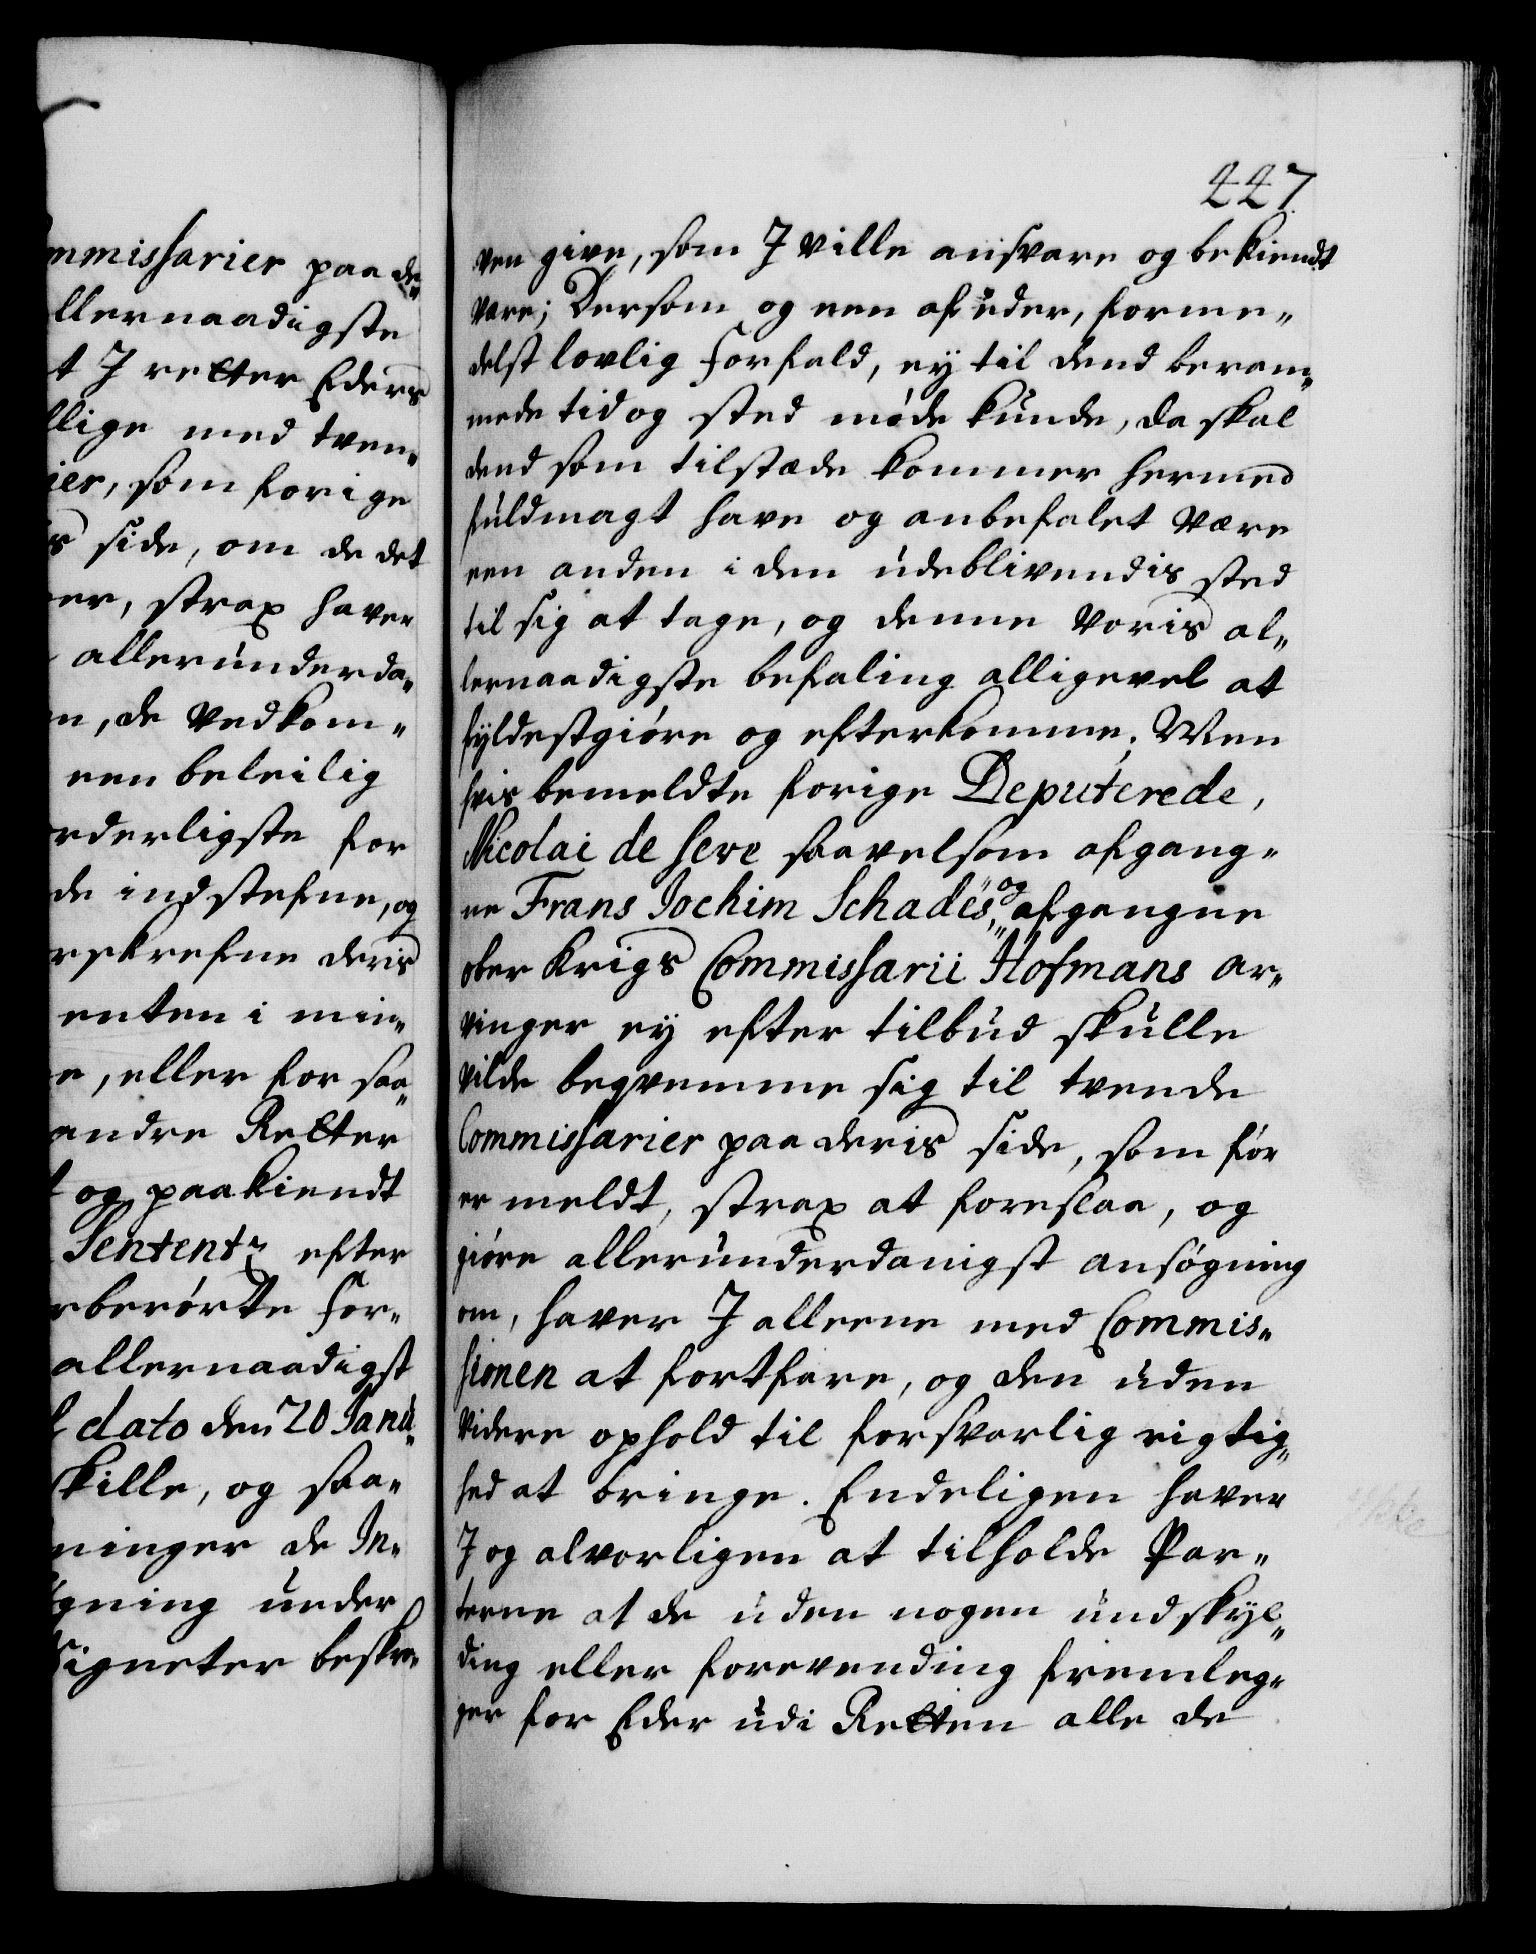 mmissarier paa de„
llernaadigste
t J retter Eders
llige med tven„
ier, som forige
s side, om de det
er, strax haver
allerunderda„
n, de vedkom„
een beleilig
rderligste for
de indstefne, og
rskrefne deris
enten i min„
e, eller for saa„
andre Retter
t og paakiendt
Sententz efter
rberørte For„
allernaadigst
l dato den 20 Janu„
skille, og saa„
ninger de In„
gning under
Signeter beskre„
447.
ven give, som J ville ansvare og bekiendt
være; Dersom og een af eder, forme„
delst lovlig Forfald, ey til dend beram„
mede tid og sted møde kunde, da skal
dend som tilstæde kommer hermed
fuldmagt have og anbefalet være
een anden i den udeblivendis sted
til sig at tage, og denne Voris al„
lernaadigste befaling alligevel at
fyldestgiøre og efterkomme. Men
hvis bemeldte forige Deputerede,
Nicolai de Seve saavelsom afgang„
ne Frans Jochim Schades, og afgangne
ober Krigs Commissarii Hofmans ar„
vinger ey efter tilbud skulle
vilde beqvemme sig til tvende
Commissarier paa deris side, som før
er meldt, strax at foreslaa, og
giøre allerunderdanigst ansøgning
om, haver J alleene med Commis„
sionen at fortfare, og den uden
videre ophold til forsvarlig rigtig„
hed at bringe. Endeligen haver
J og alvorligen at tilholde Par„
terne at de uden nogen undskyl„
ding eller forevending fremleg„
ger for Eder udi Retten alle de